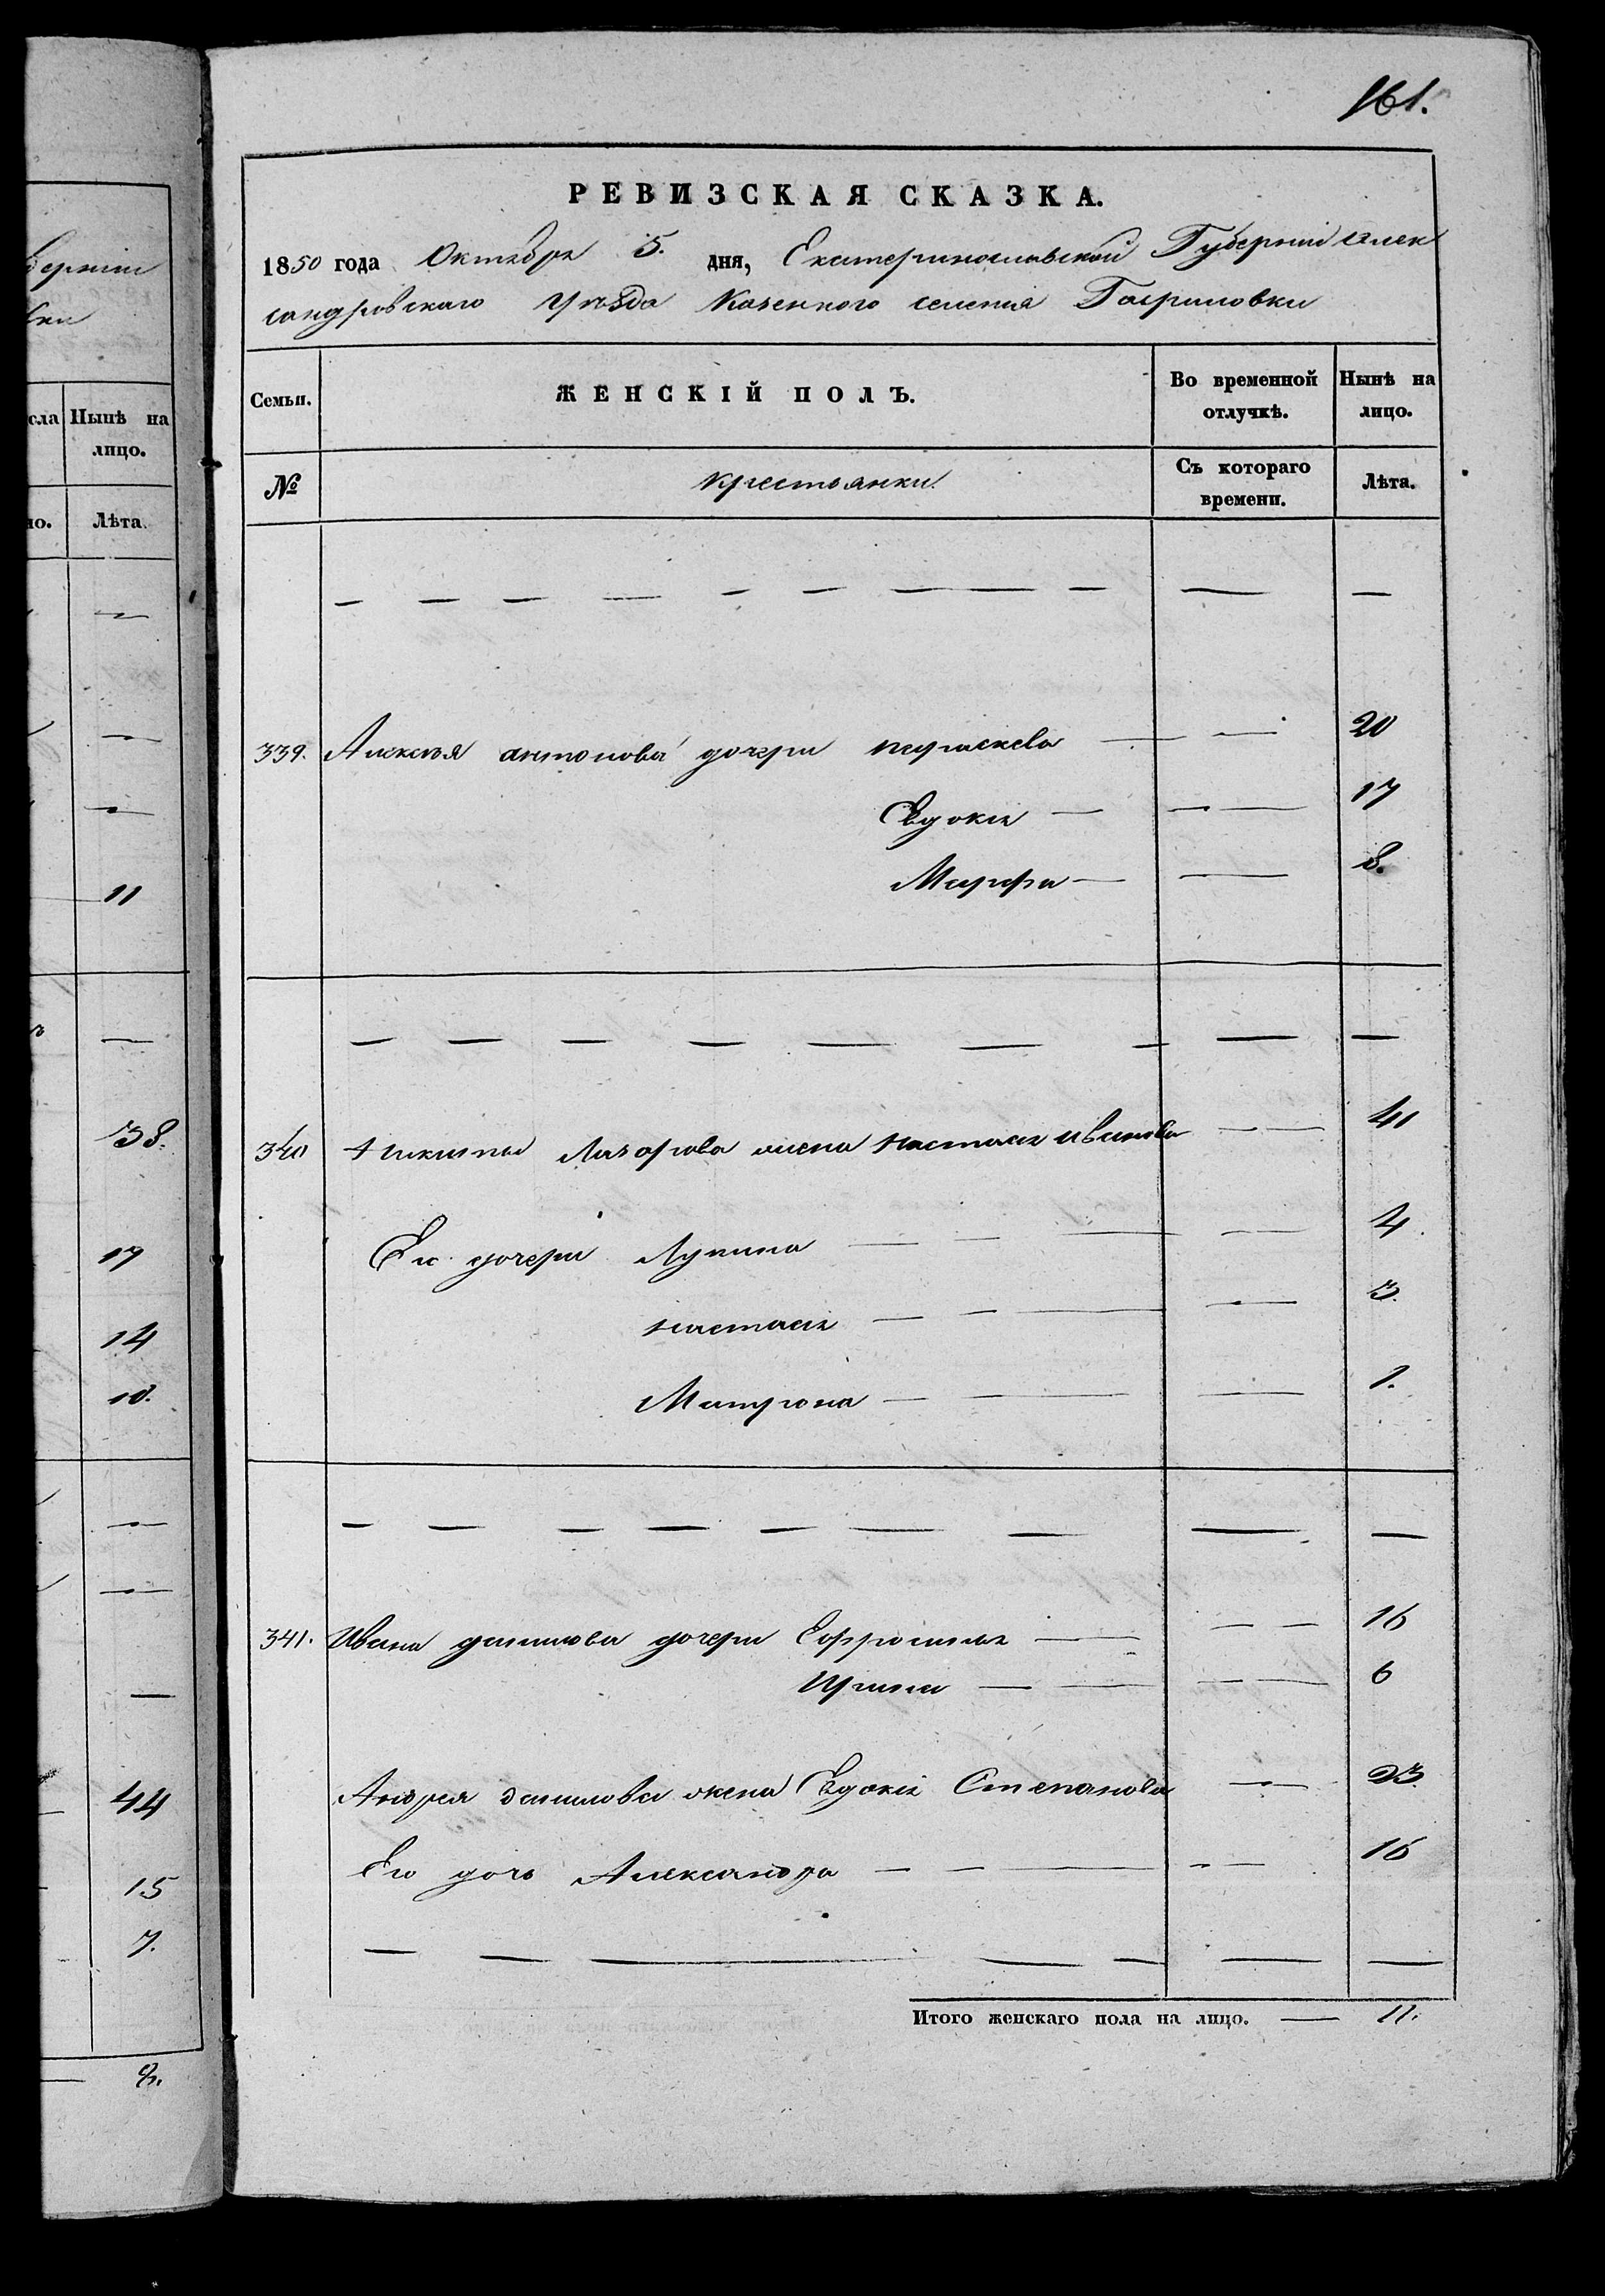 дерніи
вки
161.
РЕВИЗСКАЯ СКАЗКА.
1850 года Октября 5. дня, Екатеринославской Губерніи Алек
сандровскаго Уѣзда Казенного селенія Гавриловки
сла Нынѣ на лицо.
но. Лѣта.
11
38.
17
14
10.
44
15
7.
8.
Семьи. ЖЕНСКІЙ ПОЛЪ. Во временной отлучкѣ. Нынѣ на лицо.
№ Крестьянки. Съ котораго времени. Лѣта.
339. Алексѣя антонова дочери параскева — — 20
Евдокія — — 17
Марфа — — 8.
340 Никиты Лазорова жена Настасія иванова — — 41
Его дочери Лукина — — 4.
настасія — — 3.
Матрона — — 1.
341. Ивана данилова дочери Ефросинія — — 16
Ирина — — 6
Андрея данилова жена Евдокія Степанова — 23.
Его дочь Александра — — 16
Итого женскаго пола на лицо. — 11.